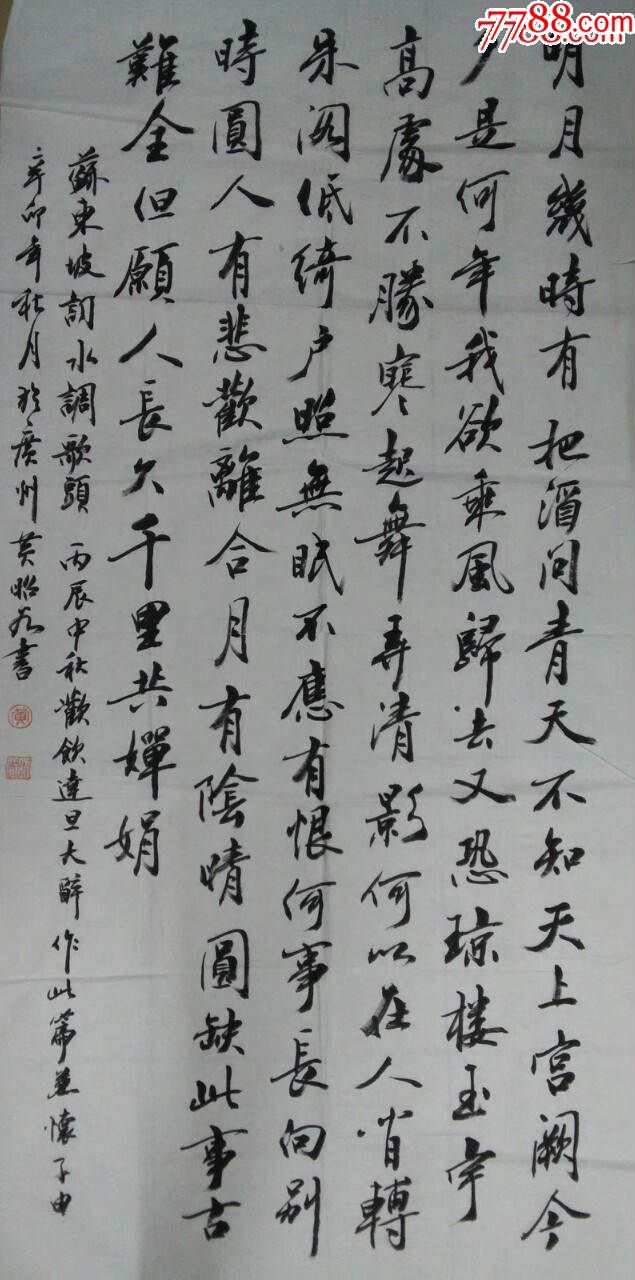 7788.com
明月幾時有把酒問青天不知天上宮闕今
夕是何年我欲乘風歸去又恐琼楼玉宇
高處不勝寒起舞弄清影何以在人肖轉
朱阁低綺户照無眠不應有恨何事長向别
時圓人有悲歡離合月有陰晴圓缺此事古
難全但願人長久千里共嬋娟
蘇東坡詞水調歌頭 丙辰中秋歡飲達旦大醉作此篇兼懷子由
辛卯年秋月於廣州黄昭 書
黄